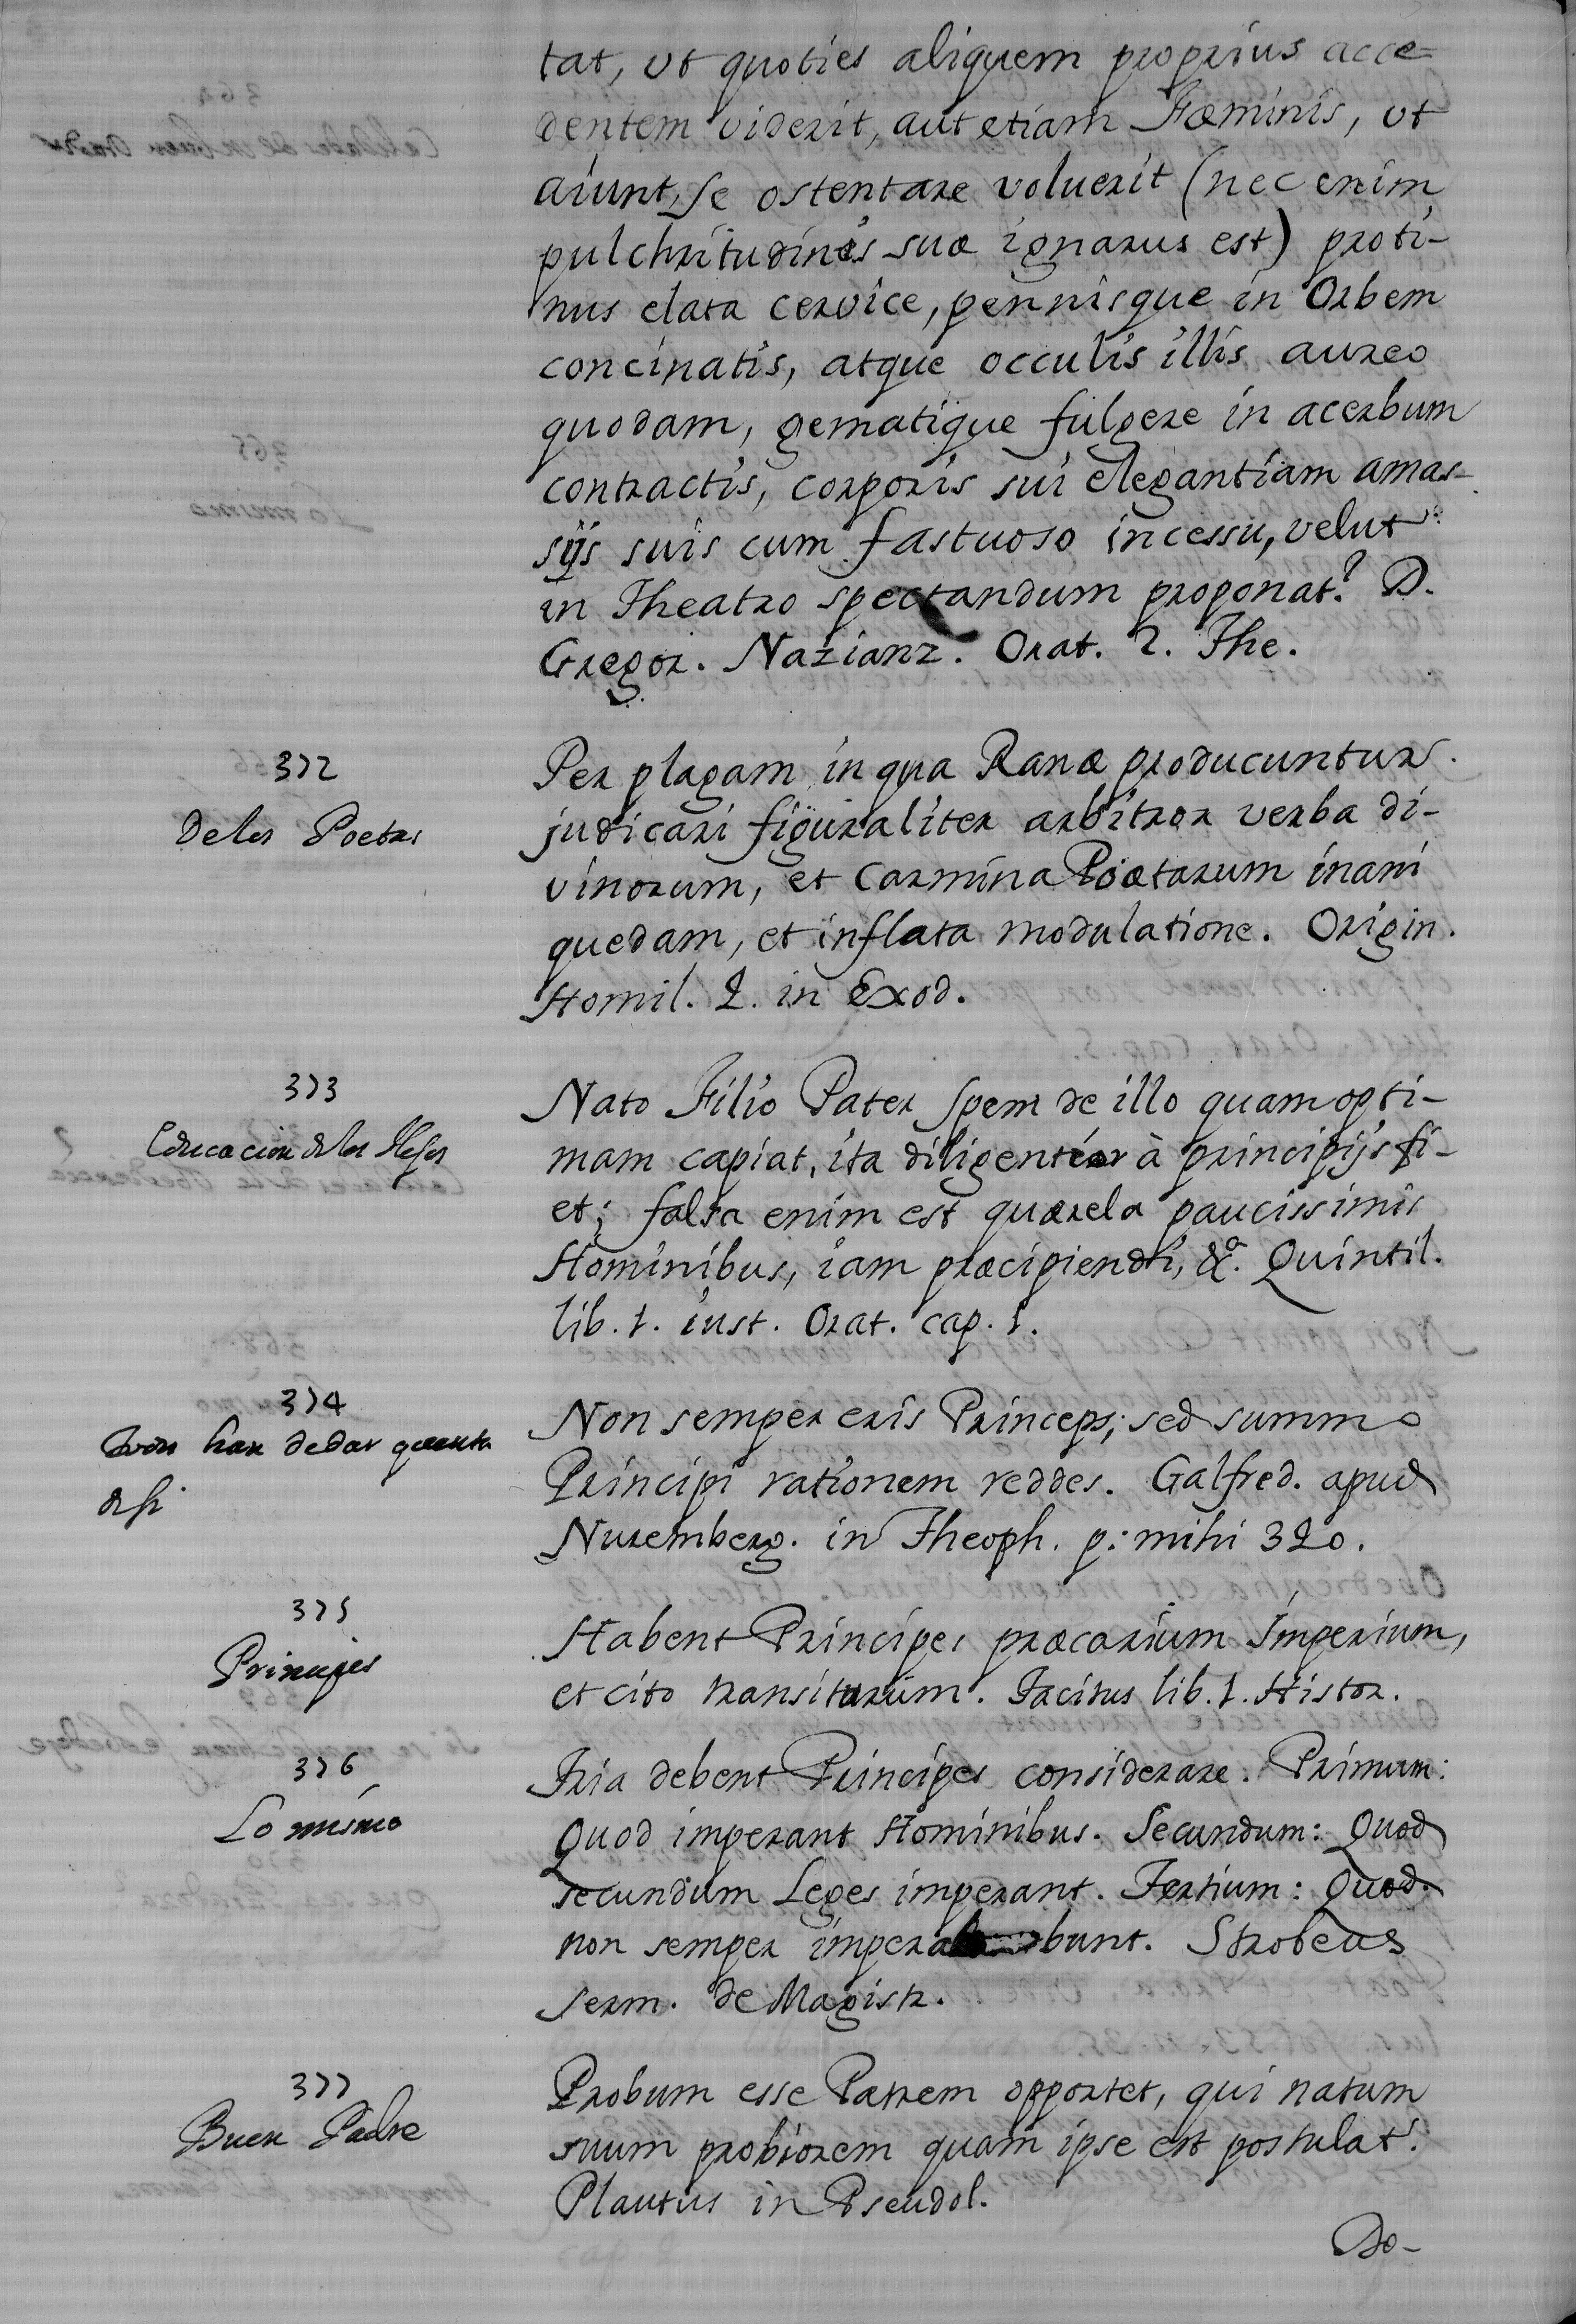 tat, ut quoties aliquem proprius acce-
dentem viderit, aut etiam Fæminis, ut
aiunt, se ostentare voluerit (nec enim
pulchritudinis suæ ignarus est) proti-
nus elata cervice, pennisque in Orbem
concinatis, atque occulis illis aureo
quodam, gematique fulgere in acerbum
contractis, corporis sui elegantiam amas-
sijs suis cum fastuoso incessu, velut
in Theatro spectandum proponat? D.
Gregor. Nazianz. Orat. 2. The.
372
De los Poetas
Per plagam in qua Ranæ producuntur
judicari figuraliter arbitror verba di-
vinorum, et Carmina Poætarum inani
quedam, et inflata modulatione. Origin.
Homil. 2. in Exod.
373
Educacion de los Hijos
Nato Filio Pater spem de illo quam opti-
mam capiat, ita diligentior à principijs fi-
et; falsa enim est quærela paucissimis
Hominibus, iam præcipiendi, &a. Quintil.
lib. 1. inst. Orat. cap. 1.
374
han de dar quenta
de si
Non semper eris Princeps; sed summo
Principi rationem reddes. Galfred. apud
Nuremberg. in Theoph. p: mihi 320.
375
Principes
Habent Principes præcarium Imperium,
et cito transiturum. Tacitus lib. 1. Histor.
376
Lo mismo
Tria debent Principes considerare. Primum:
Quod imperant Hominibus. Secundum: Quod
secundum Leges imperant. Tertium: Quod
non semper imperabunt. Strobeus
serm. de Magistr.
377
Buen Padre
Probum esse Patrem opportet, qui natum
suum probiorem quam ipse est postulat.
Plautus in Pseudol.
Do-